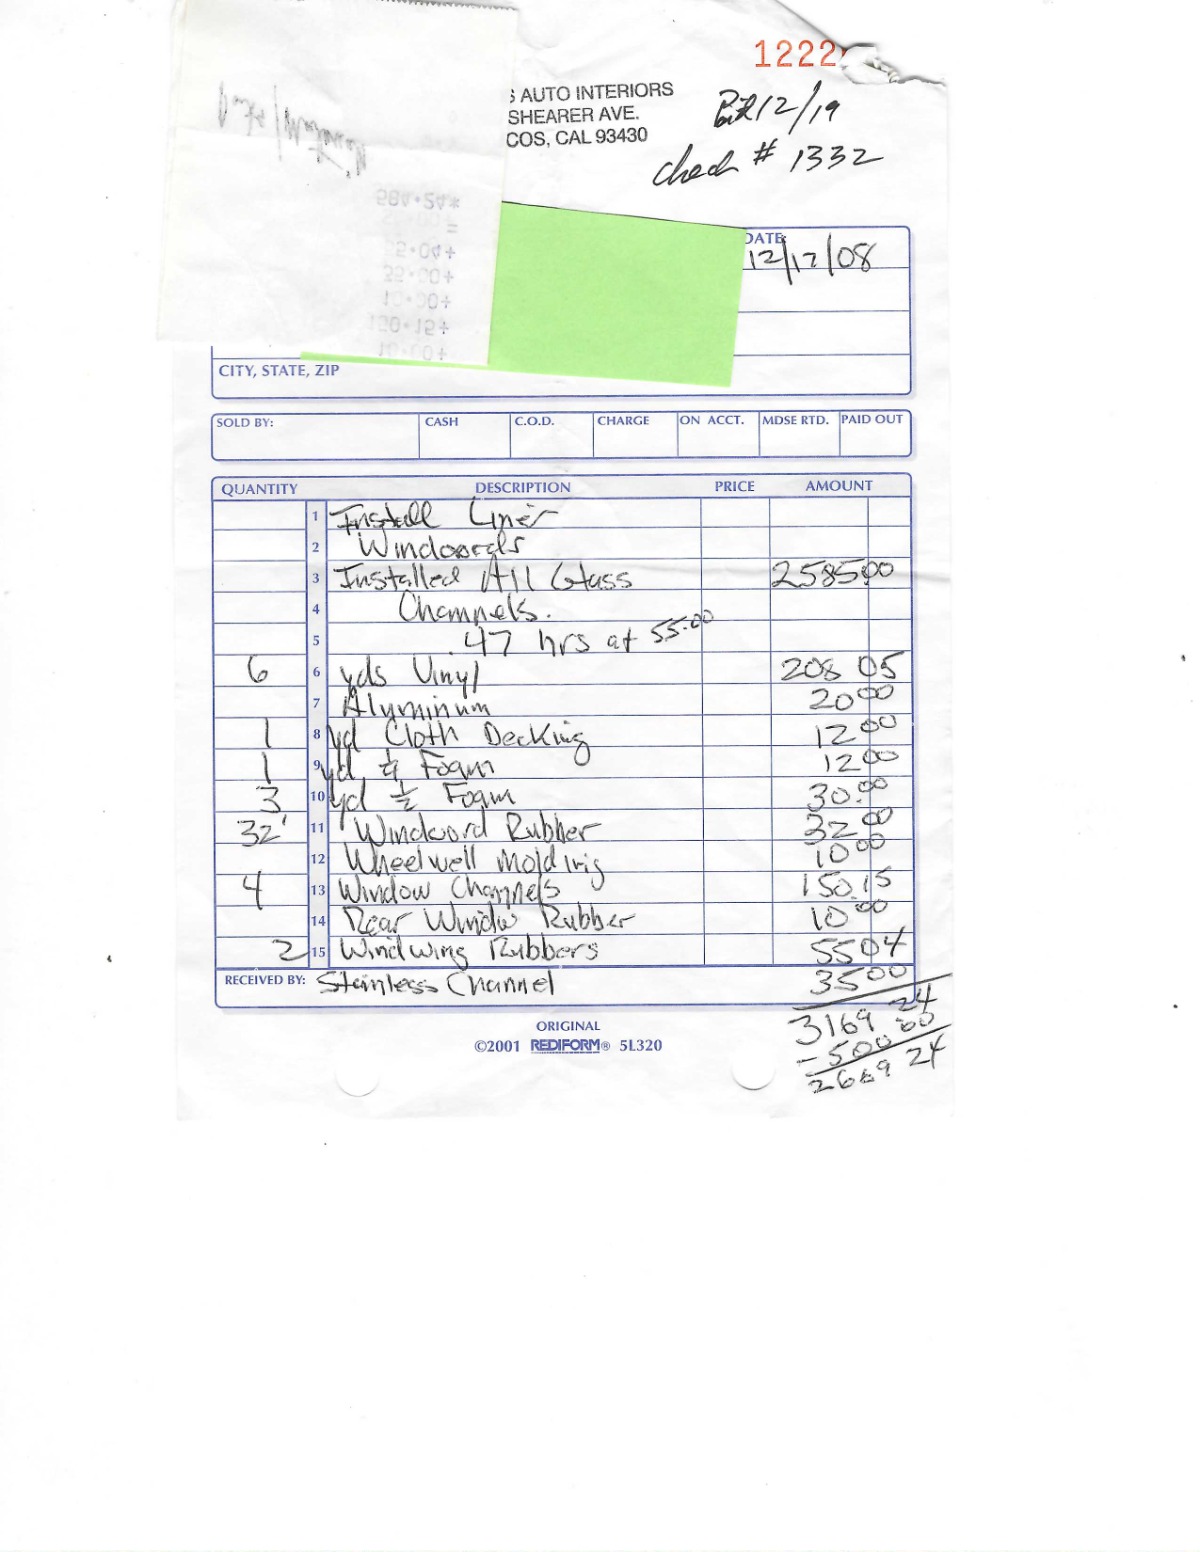 1222
S AUTO INTERIORS
SHEARER AVE.
COS, CAL 93430
Pd 12/19
Check # 1332
584.24*
=
55.04+
35.00+
10.00+
150.15+
10.00+
DATE
12/17/08
CITY, STATE, ZIP
SOLD BY: CASH C.O.D. CHARGE ON ACCT. MDSE RTD. PAID OUT
QUANTITY DESCRIPTION PRICE AMOUNT
1 Install Liner
2 Windcords
3 Installed All Glass 258500
4 Channels.
5 47 hrs at 55.00
6 6 yds Vinyl 208 05
7 Aluminum 2000
1 8 yd Cloth Decking 1200
1 9 yd 1/4 Foam 1200
3 10 yd 1/2 Foam 30.00
32' 11 Windcord Rubber 3200
12 Wheelwell Molding 1000
4 13 Window Channels 150.15
14 Rear Window Rubber 1000
2 15 Windwing Rubbers 5504
RECEIVED BY: Stainless Channel 3500
3169 24
- 500 00
2669 24
ORIGINAL
©2001 REDIFORM® 5L320